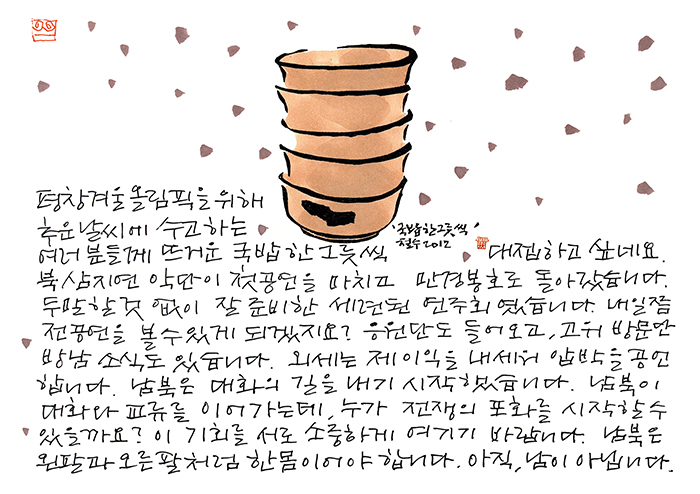 평창겨울올림픽을 위해
추운날씨에 수고하는
여러 분들께 뜨거운 국밥 한 그릇씩
'국밥한그릇씩'
철수 2012
대접하고 싶네요.
북 삼지연 악단이 첫공연을 마치고 만경봉호로 돌아갔습니다.
두말할것 없이 잘 준비한 세련된 연주회였습니다. 내일쯤
전공연을 볼수있게 되겠지요? 응원단도 들어오고, 고위 방문단
방남 소식도 있습니다. 외세는 제 이익을 내세워 압박을 공언
합니다. 남북은 대화의 길을 내기 시작했습니다. 남북이
대화와 교류를 이어가는데, 누가 전쟁의 포화를 시작할수
있을까요? 이 기회를 서로 소중하게 여기기 바랍니다. 남북은
왼팔과 오른팔처럼 한몸이어야 합니다. 아직, 남이 아닙니다.